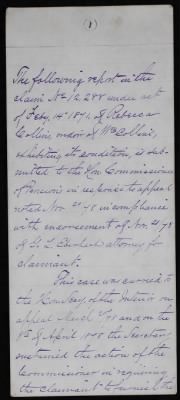 (1)
The following report in the
claim No 12,288 under act
of Feby. 14th 1871, of Rebecca
Collin, widow of Wm Collin,
exhibiting its condition, is sub-
mitted to the Hon Commissioner
of Pensions in response to appeal
noted Nov. 21st 78 in compliance
with endorsement of Nov. 21st 78
of attorney for
claimant.
This case was carried to
the Hon Secy of the Interior on
appeal and on the
of April the Secretary
sustained the action of the
Commissioner in requiring
the claimant to furnish the